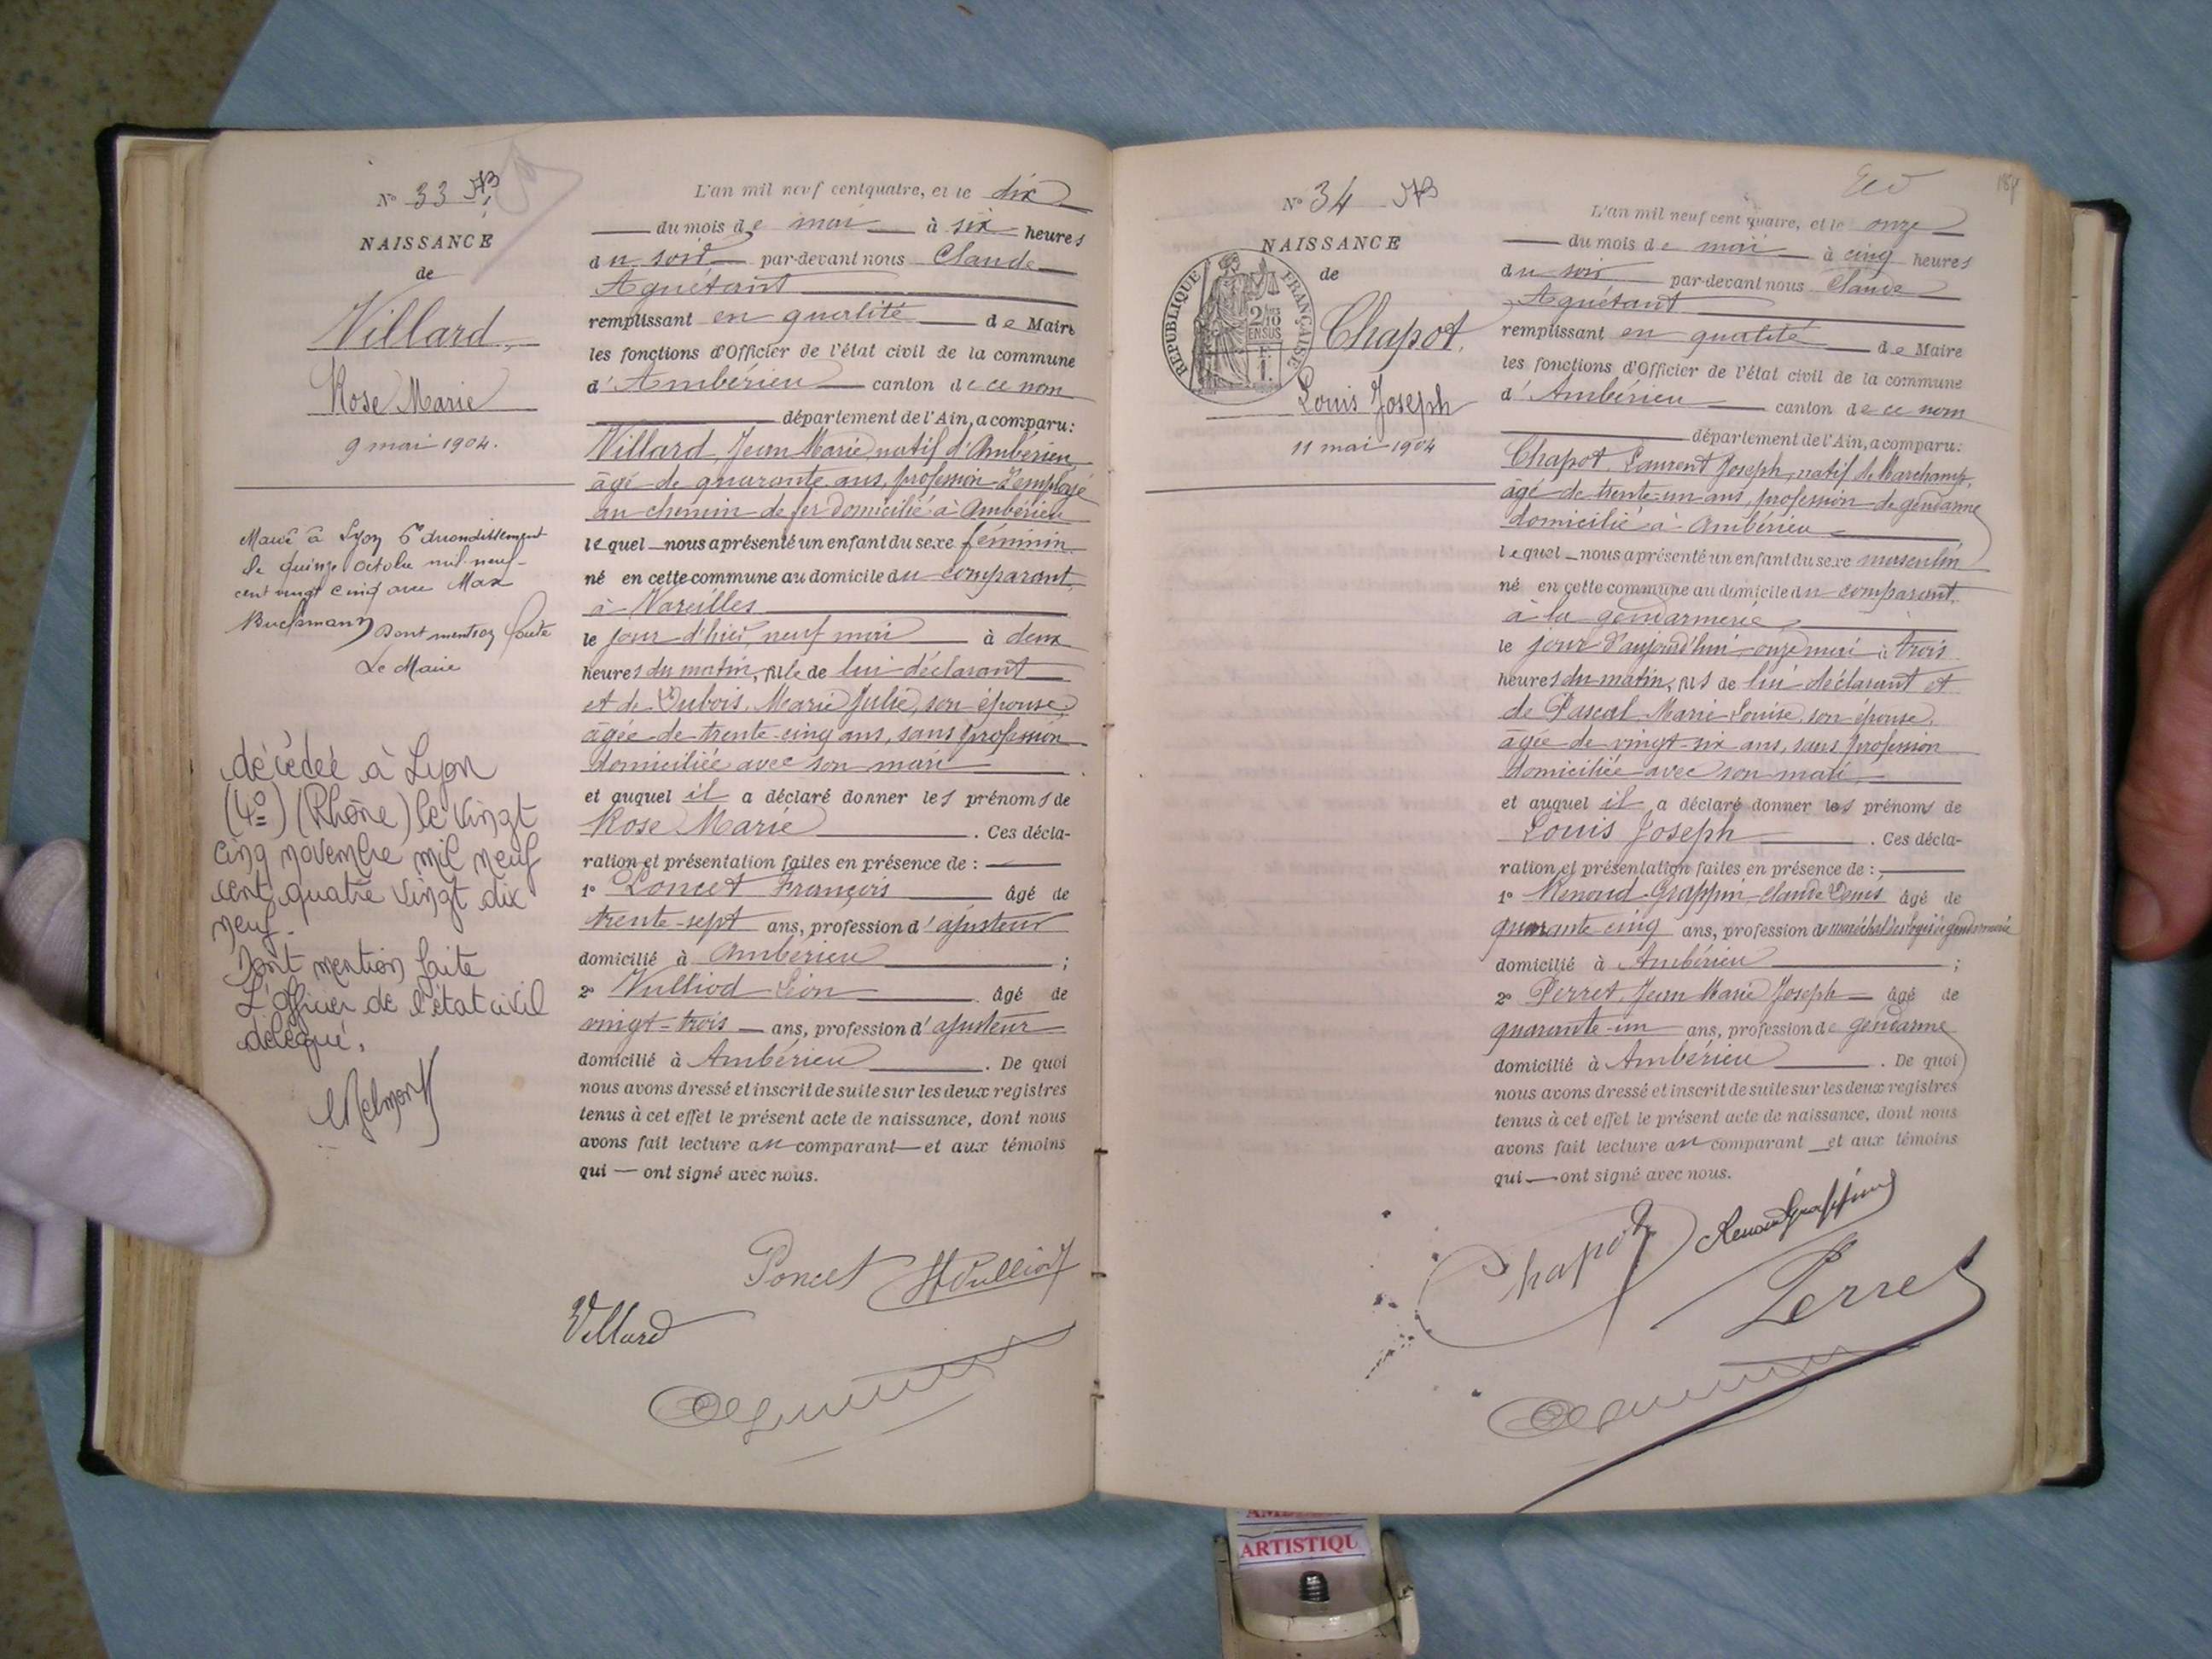 N° 33
NAISSANCE
de
Villard,
Rose Marie
9 mai 1904.
Mariée à Lyon 6e arrondissement
le quinze octobre mil neuf-
cent vingt cinq avec Max
dont mention faite
Le Maire
décédée à Lyon
(4e) (Rhône) le vingt
cinq novembre mil neuf
cent quatre vingt dix
neuf.
Dont mention faite
L'Officier de l'état civil
délégué,
L'an mil neuf cent quatre, et le dix
du mois de mai à six heures
du soir par-devant nous Claude
Aguétant
remplissant en qualité de Maire
les fonctions d'Officier de l'état civil de la commune
d'Ambérieu canton de ce nom
département de l'Ain, a comparu:
Villard, Jean Marie, natif d'Ambérieu
âgé de quarante ans, profession d'employé
au chemin de fer domicilié à Ambérieu
lequel nous a présenté un enfant du sexe féminin
né en cette commune au domicile du comparant,
à Vareilles
le jour d'hier, neuf mai à deux
heures du matin, fille de lui déclarant
et de Dubois, Marie Julie, son épouse,
âgée de trente-cinq ans, sans profession
domiciliée avec son mari
et auquel il a déclaré donner les prénoms de
Rose Marie . Ces décla-
ration et présentation faites en présence de :
1° Poncet François âgé de
trente-sept ans, profession d'ajusteur
domicilié à Ambérieu ;
2° Vulliod Léon âgé de
vingt-trois ans, profession d'ajusteur
domicilié à Ambérieu . De quoi
nous avons dressé et inscrit de suite sur les deux registres
tenus à cet effet le présent acte de naissance, dont nous
avons fait lecture au comparant et aux témoins
qui — ont signé avec nous.
Poncet Vulliod
Villard
N° 34
NAISSANCE
de
REPUBLIQUE FRANÇAISE
2/10
EN SUS
F.
1.
Chapot,
Louis Joseph
11 mai 1904
184
L'an mil neuf cent quatre, et le onze
du mois de mai à cinq heures
du soir par-devant nous Claude
Aguétant
remplissant en qualité de Maire
les fonctions d'Officier de l'état civil de la commune
d'Ambérieu canton de ce nom
département de l'Ain, a comparu:
Chapot, Laurent Joseph, natif de Marchamp,
âgé de trente-un ans, profession de gendarme
domicilié à Ambérieu
lequel nous a présenté un enfant du sexe masculin
né en cette commune au domicile du comparant,
à la gendarmerie,
le jour d'aujourd'hui onze mai à trois
heures du matin, fils de lui déclarant et
de Pascal Marie Louise, son épouse,
âgée de vingt-six ans, sans profession
domiciliée avec son mari,
et auquel il a déclaré donner les prénoms de
Louis Joseph . Ces décla-
ration et présentation faites en présence de :
1° Renoud-Grappin Claude Denis âgé de
quarante cinq ans, profession de maréchal des logis de gendarmerie
domicilié à Ambérieu ;
2° Perret, Jean Marie Joseph âgé de
quarante-un ans, profession de gendarme
domicilié à Ambérieu . De quoi
nous avons dressé et inscrit de suite sur les deux registres
tenus à cet effet le présent acte de naissance, dont nous
avons fait lecture au comparant et aux témoins
qui — ont signé avec nous.
Chapot Renoud Grappin
Perret
ARTISTIQU